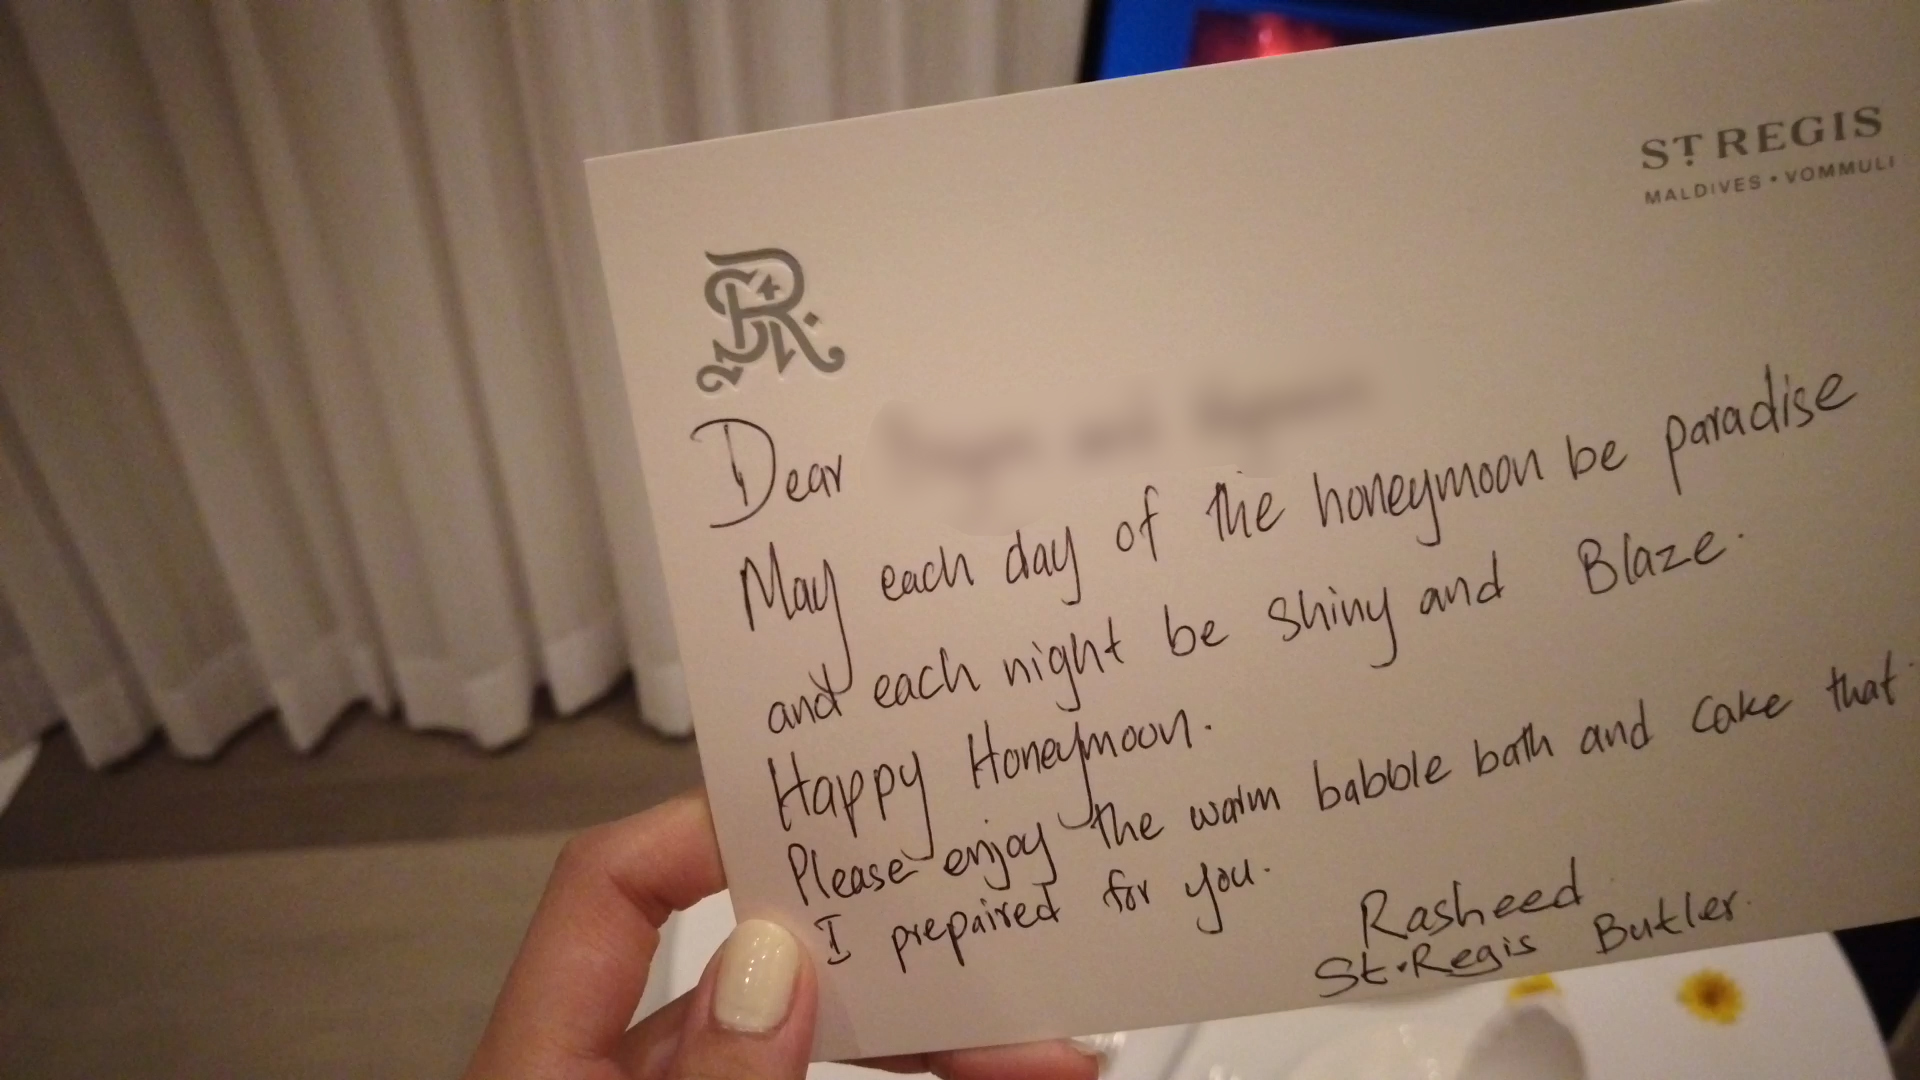 ST REGIS
MALDIVES • VOMMULI
Dear
May each day of the honeymoon be paradise
and each night be shiny and Blaze.
Happy Honeymoon.
Please enjoy the warm babble bath and cake that
I prepaired for you.
Rasheed
St. Regis Butler.